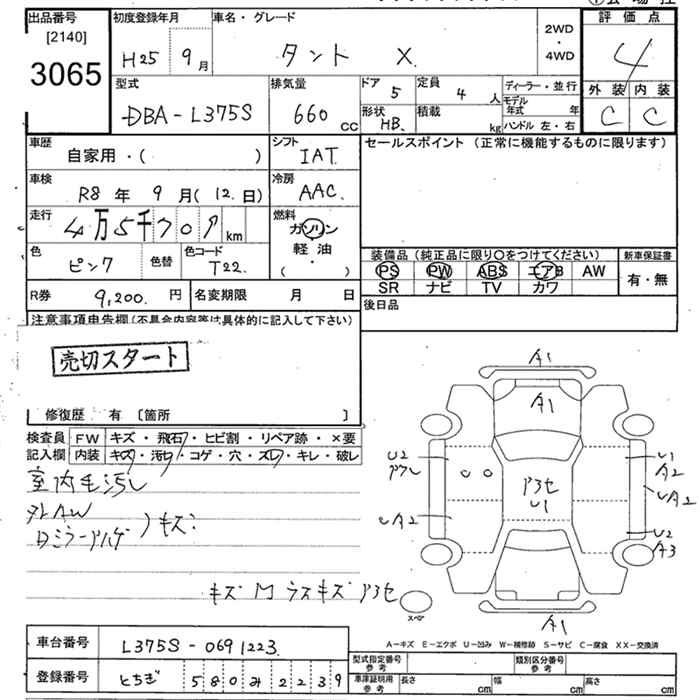 出品番号 初度登録年月 車名・グレード 評価点
[2140]
3065
H25 9月 タント X. 2WD・4WD 4
型式 排気量 ドア 5 定員 4人 ディーラー・並行 外装 内装
DBA-L375S 660cc 形状 HB. 積載 kg モデル年式 年 ハンドル 左・右 C C
車歴 シフト セールスポイント (正常に機能するものに限ります)
自家用・( ) IAT
車検 冷房
R8年 9月(12.日) AAC.
走行 燃料
4万5千707km ガソリン
色 色替 色コード 軽油・( )
ピンク T22.
装備品 (純正品に限り○をつけてください) 新車保証書
PS PW ABS エアB AW 有・無
SR ナビ TV カワ
R券 9,200.円 名変期限 月 日 後日品
注意事項申告欄(不具合内容等は具体的に記入して下さい)
売切スタート
修復歴 有 [箇所 ]
検査員 FW キズ・飛石・ヒビ割・リペア跡・×要
記入欄 内装 キズ・汚れ・コゲ・穴・スレ・キレ・破レ
室内毛汚レ
外AW
Dミラー )キズ.
キズ
A1
A1
U2 U1
A2
UA2 UA2
U1
U2
A3
スペア
A1
A-キズ E-エクボ U-凹み W-補修跡 S-サビ C-腐食 XX-交換済
車台番号 L375S-0691223.
型式指定番号 参考 類別区分番号 参考
登録番号 とちぎ 580み2239
車庫証明用 参考 長さ cm 幅 cm 高さ cm